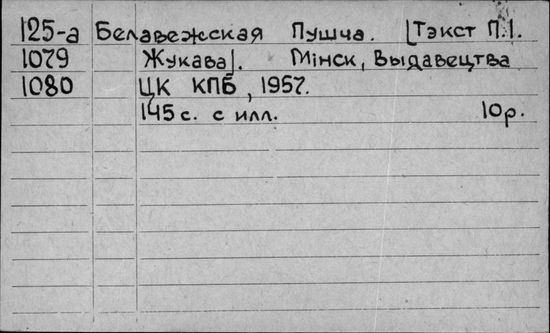 125-а Белавежская Пушча. [Тэкст П.І.
1079 Жукава]. Мінск, Выдавецтва
1080 ЦК КПБ, 1957.
145 с. с илл. 10р.